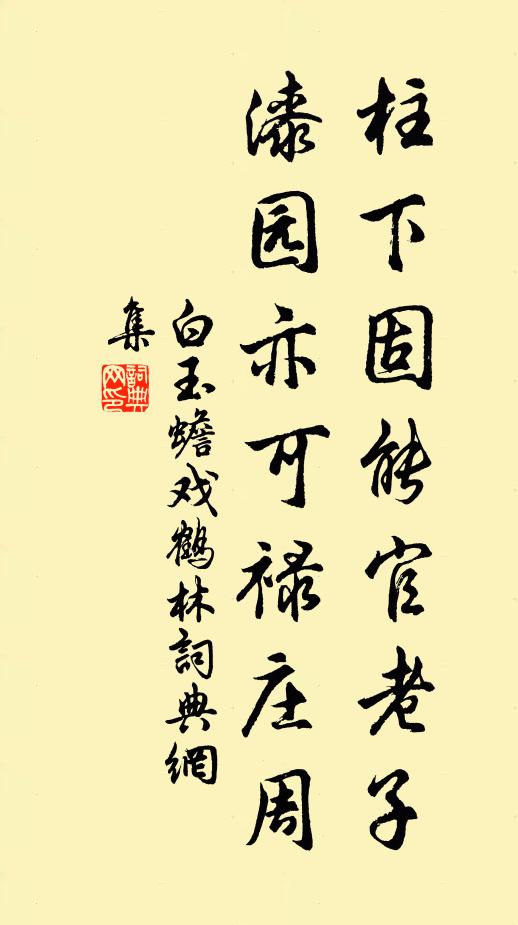 柱下固能官老子
漆园亦可禄庄周
白玉蟾戏鹤林詞典網
集
詞典
网印